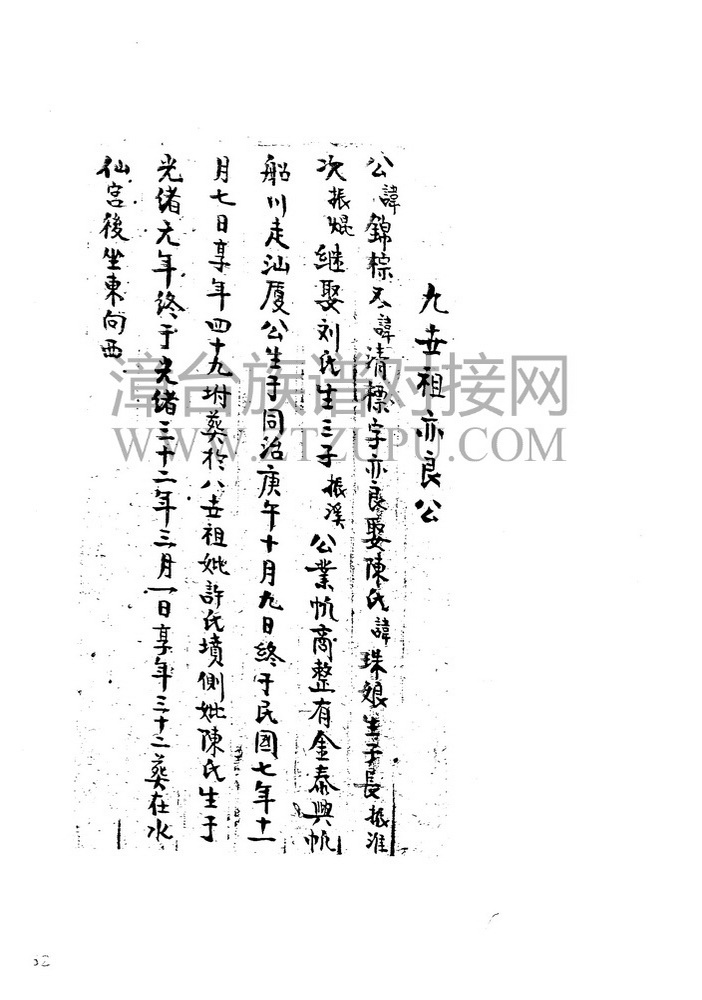 九世祖亦良公
公諱錦棕又諱清標字亦良娶陳氏諱珠娘生子長振淮
次振焜继娶刘氏生三子振溪公業帆商整有金泰興帆
船川走汕厦公生于同治庚午十月九日終于民國七年十一
月七日享年四十九坿葬於八世祖妣許氏墳側妣陳氏生于
光绪元年终于光绪三十二年三月一日享年三十二葬在水
仙宫後坐東向西
漳台族谱对接网
WWW.ZTZUPU.COM